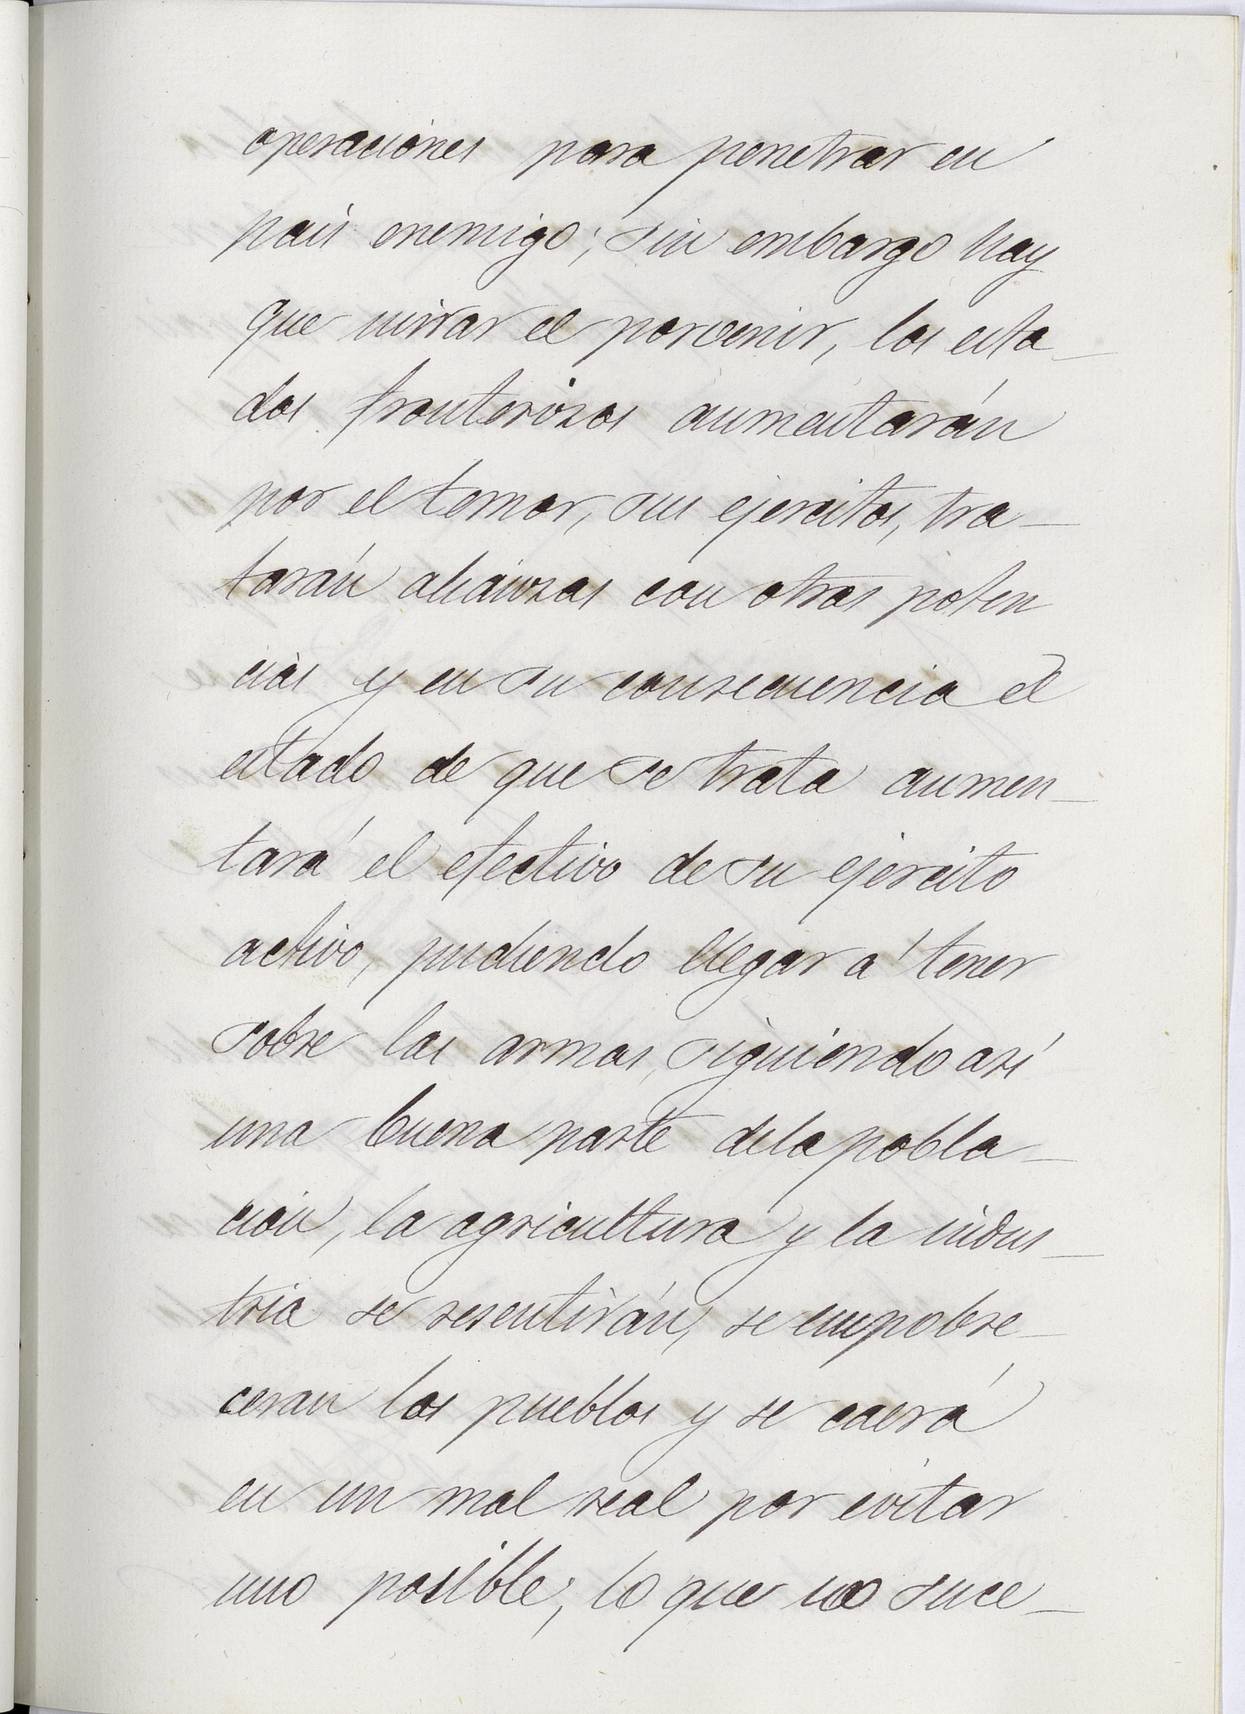 operaciones para penetrar en
pais enemigo; sin embargo hay
que mirar el porvenir, los esta_
dos fronterizos aumentarán
por el temor, sus ejercitos, tra_
tarán alianzas con otras poten
cias y en su consecuencia el
estado de que se trata aumen_
tará el efectivo de su ejercito
activo, pudiendo llegar á tener
sobre las armas, siguiendo asi
una buena parte dela pobla_
ción, la agricultura y la indus_
tria se resentirán, se empobre_
ceran los pueblos y se caerá
en un mal real por evitar
uno posible; lo que no suce_